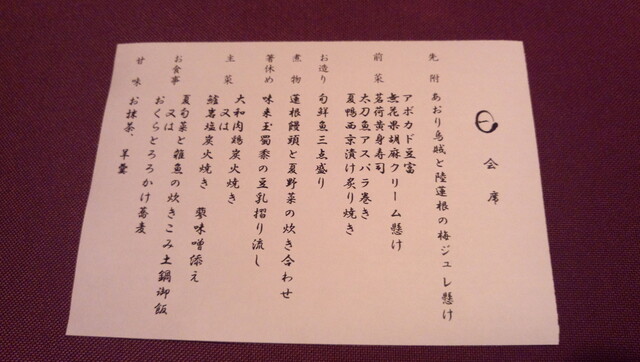 会席
先附 あおり烏賊と陸蓮根の梅ジュレ懸け
前菜 アボカド豆富
無花果胡麻クリーム懸け
茗荷黄身寿司
太刀魚アスパラ巻き
夏鴨西京漬け炙り焼き
お造り 旬鮮魚三点盛り
煮物 蓮根饅頭と夏野菜の炊き合わせ
箸休め 味来玉蜀黍の豆乳摺り流し
主菜 大和肉鶏炭火焼き
又は
鱸岩塩炭火焼き 蓼味噌添え
お食事 夏旬菜と雑魚の炊きこみ土鍋御飯
又は
おくらとろろかけ蕎麦
甘味 お抹茶、羊羹